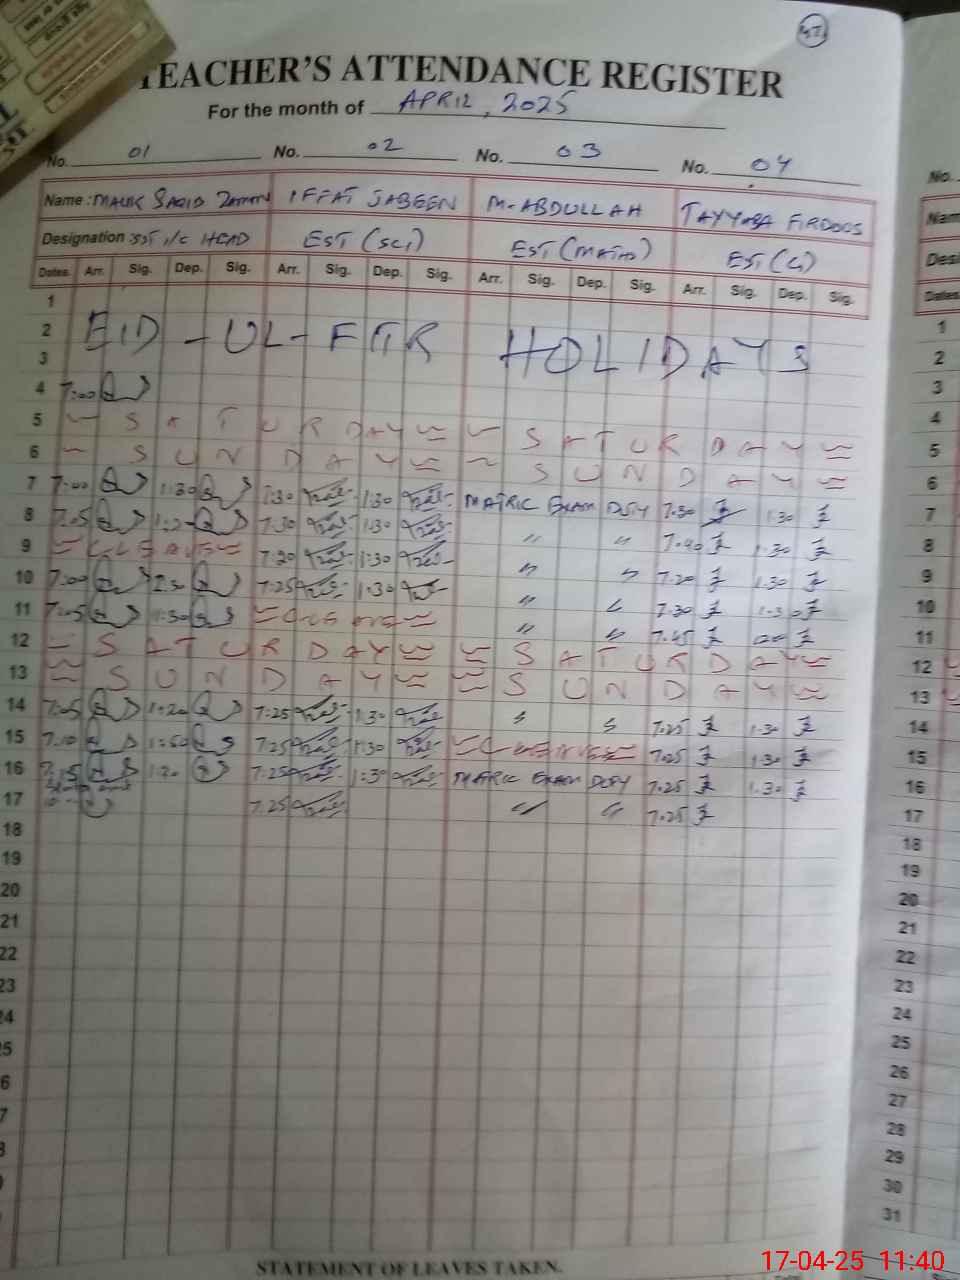 TEACHER'S ATTENDANCE REGISTER
For the month of APRIL, 2025
No. 01 No. 02 No. 03 No. 04
Name: MALIK SAQID ZAMAN IFFAT JABEEN M-ABDULLAH TAYYABA FIRDOOS
Designation: SST i/c HEAD EST (SCI) EST (MATH) EST
Dates. Arr. Sig. Dep. Sig. Arr. Sig. Dep. Sig. Arr. Sig. Dep. Sig. Arr. Sig. Dep. Sig.
1
2 EID-UL-FITR HOLIDAYS
3
4 7:00
5 SATURDAY SATURDAY
6 SUNDAY SUNDAY
7 7:00 1:30 7:30 1:30 MATRIC EXAM DUTY 7.30 1.30
8 7.05 7.30 1:30 " " 7.40 1.30
9 C. LEAVE 7.20 1:30 " " 7.20 1.30
10 7:00 7.25 1:30 " " 7.30 1.30
11 7:05 1:30 C. LEAVE " " 7.45
12 SATURDAY SATURDAY
13 SUNDAY SUNDAY
14 7:05 1:20 7.25 1:30 " " 7.25 1.30
15 7.10 7.25 1:30 C. LEAVE 7.25 1.30
16 7.15 1:20 7.25 1:30 MATRIC EXAM DUTY 7.25 1.30
17 7.25 " " 7.25
18
19
20
21
22
23
24
25
26
27
28
29
30
31
STATEMENT OF LEAVES TAKEN.
17-04-25 11:40